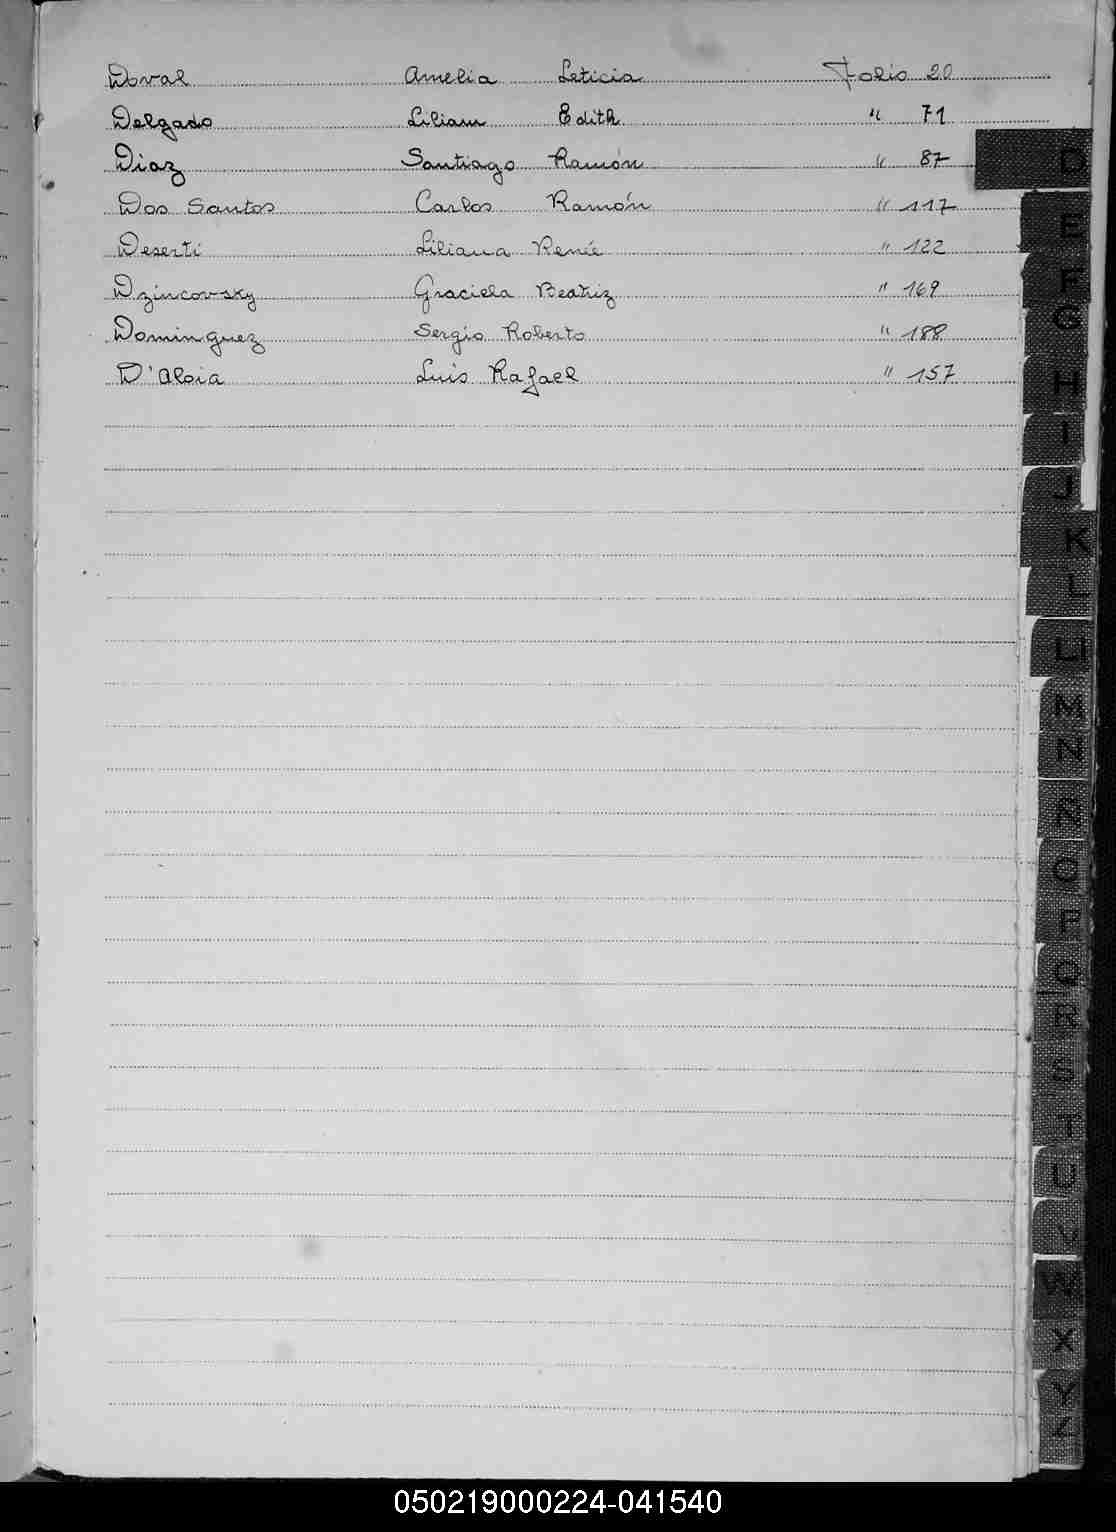 Doval Amelia Leticia Folio 20
Delgado Liliam Edith " 71
Diaz Santiago Ramón " 87
Dos Santos Carlos Ramón " 117
Deserti Liliana Renée " 122
Dzincovsky Graciela Beatriz " 169
Dominguez Sergio Roberto " 188
D'Aloia Luis Rafael " 157
D
E
F
G
H
I
J
K
L
LL
M
N
Ñ
O
P
Q
R
S
T
U
V
W
X
Y
Z
050219000224-041540